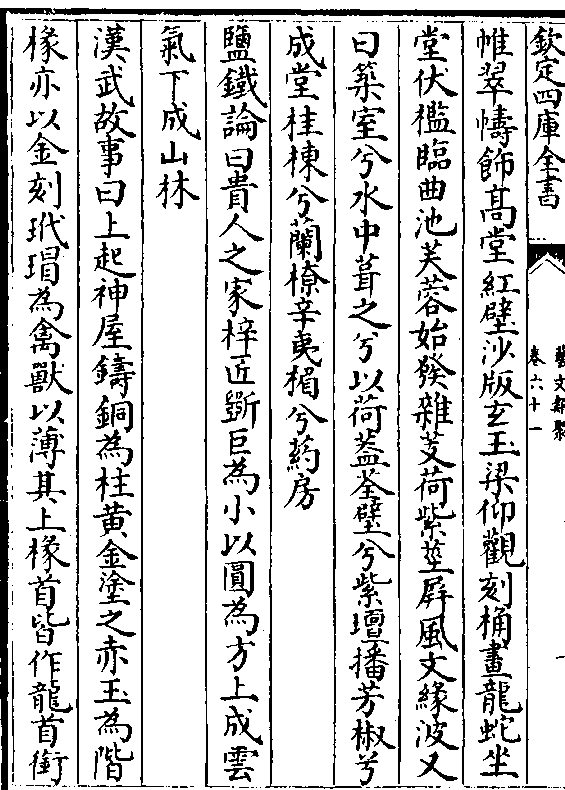 欽定四庫全書
藝文類聚
卷六十一
帷翠幬飾髙堂紅壁沙版玄玉梁仰觀刻桷畫龍蛇坐
堂伏檻臨曲池芙蓉始發雜芰荷紫莖屏風文緣波又
曰築室兮水中葺之兮以荷葢荃壁兮紫壇播芳椒兮
成堂桂棟兮蘭橑辛夷楣兮葯房
鹽鐵論曰貴人之家梓匠斵巨為小以圓為方上成雲
氣下成山林
漢武故事曰上起神屋鑄銅為柱黄金塗之赤玉為階
椽亦以金刻玳瑁為禽獸以薄其上椽首皆作龍首銜